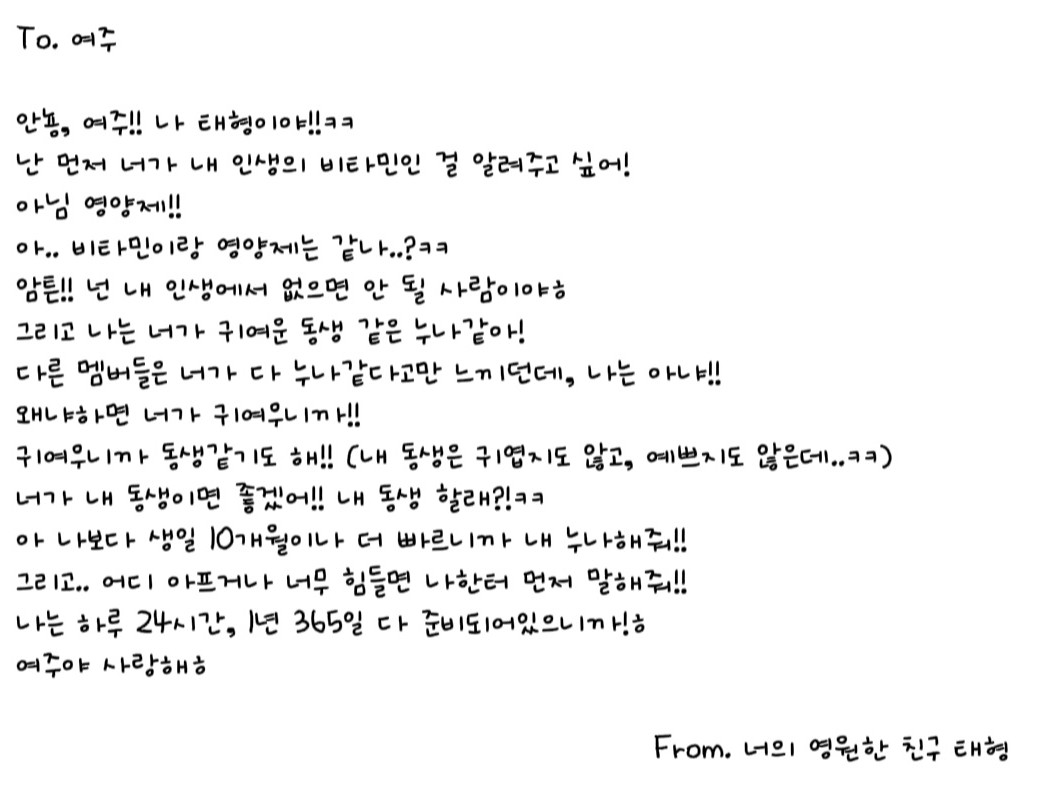 To. 여주
안뇽, 여주!! 나 태형이야!!ㅋㅋ
난 먼저 너가 내 인생의 비타민인 걸 알려주고 싶어!
아님 영양제!!
아.. 비타민이랑 영양제는 같나..?ㅋㅋ
암튼!! 넌 내 인생에서 없으면 안 될 사람이야ㅎ
그리고 나는 너가 귀여운 동생 같은 누나같아!
다른 멤버들은 너가 다 누나같다고만 느끼던데, 나는 아냐!!
왜냐하면 너가 귀여우니까!!
귀여우니까 동생같기도 해!! (내 동생은 귀엽지도 않고, 예쁘지도 않은데..ㅋㅋ)
너가 내 동생이면 좋겠어!! 내 동생 할래?!ㅋㅋ
아 나보다 생일 10개월이나 더 빠르니까 내 누나해줘!!
그리고.. 어디 아프거나 너무 힘들면 나한터 먼저 말해줘!!
나는 하루 24시간, 1년 365일 다 준비되어있으니까!ㅎ
여주야 사랑해ㅎ
From. 너의 영원한 친구 태형